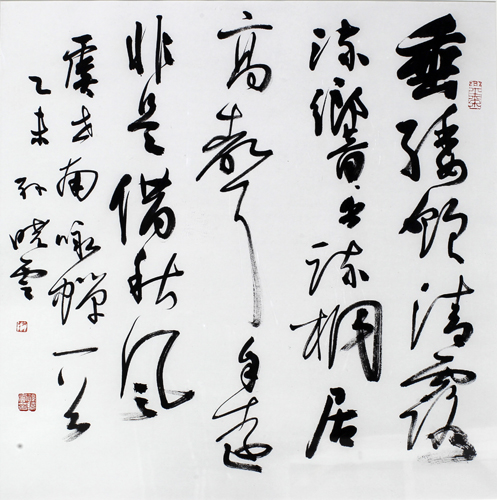 垂緌飲清露
流響出疏桐居
高聲自遠
非是借秋風
虞世南咏蟬一首
乙未 孫曉雲